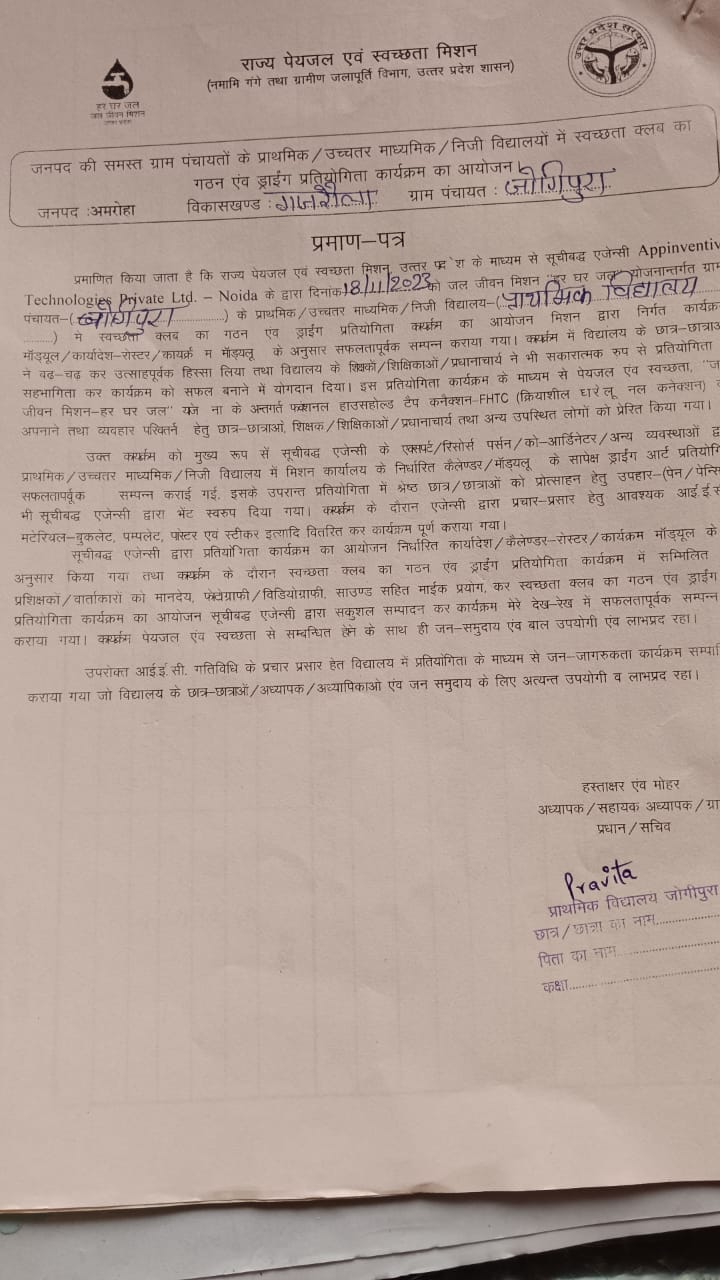 राज्य पेयजल एवं स्वच्छता मिशन
(नमामि गंगे तथा ग्रामीण जलापूर्ति विभाग, उत्तर प्रदेश शासन)
हर घर जल
जल जीवन मिशन
उत्तर प्रदेश सरकार
जनपद की समस्त ग्राम पंचायतों के प्राथमिक/उच्चतर माध्यमिक/निजी विद्यालयों में स्वच्छता क्लब का
गठन एंव ड्राईंग प्रतियोगिता कार्यक्रम का आयोजन।
जनपद :अमरोहा विकासखण्ड : गजरौला ग्राम पंचायत : जोगिपुरा
प्रमाण–पत्र
प्रमाणित किया जाता है कि राज्य पेयजल एवं स्वच्छता मिशन, उत्तर के माध्यम से सूचीबद्ध एजेन्सी Appinventiv
Technologies Private Ltd. – Noida के द्वारा दिनांक 18/11/2023 को जल जीवन मिशन "हर घर जल" योजनान्तर्गत ग्राम
पंचायत–(जोगिपुरा..............) के प्राथमिक/उच्चतर माध्यमिक/निजी विद्यालय–(प्राथमिक विद्यालय
.........) मे स्वच्छता क्लब का गठन एंव ड्राईंग प्रतियोगिता का आयोजन मिशन द्वारा निर्गत कार्यक्र
मॉड्यूल/कार्यादेश–रोस्टर/कायर्क्र म मॉड्यलू के अनुसार सफलतापूर्वक सम्पन्न कराया गया। में विद्यालय के छात्र–छात्राअ
ने बढ–चढ़ कर उत्साहपूर्वक हिस्सा लिया तथा विद्यालय के शिक्षकों/शिक्षिकाओं/प्रधानाचार्य ने भी सकारात्मक रुप से प्रतियोगिता
सहभागिता कर कार्यक्रम को सफल बनाने में योगदान दिया। इस प्रतियोगिता कार्यक्रम के माध्यम से पेयजल एंव स्वच्छता, "ज
जीवन मिशन–हर घर जल" ना के अन्तर्गत हाउसहोल्ड टैप कनैक्शन–FHTC (क्रियाशील घरेलू नल कनेक्शन)
अपनाने तथा व्यवहार परिवर्तन हेतु छात्र–छात्राओं, शिक्षक/शिक्षिकाओं/प्रधानाचार्य तथा अन्य उपस्थित लोगों को प्रेरित किया गया।
उक्त को मुख्य रुप सें सूचीबद्ध एजेन्सी के एक्सपर्ट/रिसोर्स पर्सन/को–आर्डिनेटर/अन्य व्यवस्थाओं द्व
प्राथमिक/उच्चतर माध्यमिक/निजी विद्यालय में मिशन कार्यालय के निर्धारित कैलेण्डर/मॉड्यलू के सापेक्ष ड्राईंग आर्ट प्रतियोगि
सफलतापर्वूक सम्पन्न कराई गई, इसके उपरान्त प्रतियोगिता में श्रेष्ठ छात्र/छात्राओं को प्रोत्साहन हेतु उपहार–(पेन/पेन्सि
भी सूचीबद्ध एजेन्सी द्वारा भेंट स्वरुप दिया गया। के दौरान एजेन्सी द्वारा प्रचार–प्रसार हेतु आवश्यक आई.ई.सी
मटेरियल–बुकलेट, पम्पलेट, पोस्टर एवं स्टीकर इत्यादि वितरित कर कार्यक्रम पूर्ण कराया गया।
सूचीबद्ध एजेन्सी द्वारा प्रतियोगिता कार्यक्रम का आयोजन निर्धारित कार्यादेश/कैलेण्डर–रोस्टर/कार्यक्रम मॉड्यूल के
अनुसार किया गया तथा के दौरान स्वच्छता क्लब का गठन एंव ड्राईंग प्रतियोगिता कार्यक्रम में सम्मिलित
प्रशिक्षकों/वार्ताकारों को मानदेय, फोटोग्राफी/विडियोग्राफी, साउण्ड सहित माईक प्रयोग, कर स्वच्छता क्लब का गठन एंव ड्राईंग
प्रतियोगिता कार्यक्रम का आयोजन सूचीबद्ध एजेन्सी द्वारा सकुशल सम्पादन कर कार्यक्रम मेरे देख–रेख में सफलतापूर्वक सम्पन्न
कराया गया। पेयजल एंव स्वच्छता से सम्बन्धित होने के साथ ही जन–समुदाय एंव बाल उपयोगी एंव लाभप्रद रहा।
उपरोक्त आई.ई.सी. गतिविधि के प्रचार प्रसार हेत विद्यालय में प्रतियोगिता के माध्यम से जन–जागरुकता कार्यक्रम सम्पादि
कराया गया जो विद्यालय के छात्र–छात्राओं/अध्यापक/अध्यापिकाओ एंव जन समुदाय के लिए अत्यन्त उपयोगी व लाभप्रद रहा।
हस्ताक्षर एंव मोहर
अध्यापक/सहायक अध्यापक/ग्रा
प्रधान/सचिव
Pravita
प्राथमिक विद्यालय जोगीपुरा
छात्र/छात्रा का नाम...............
पिता का नाम......................
कक्षा................................